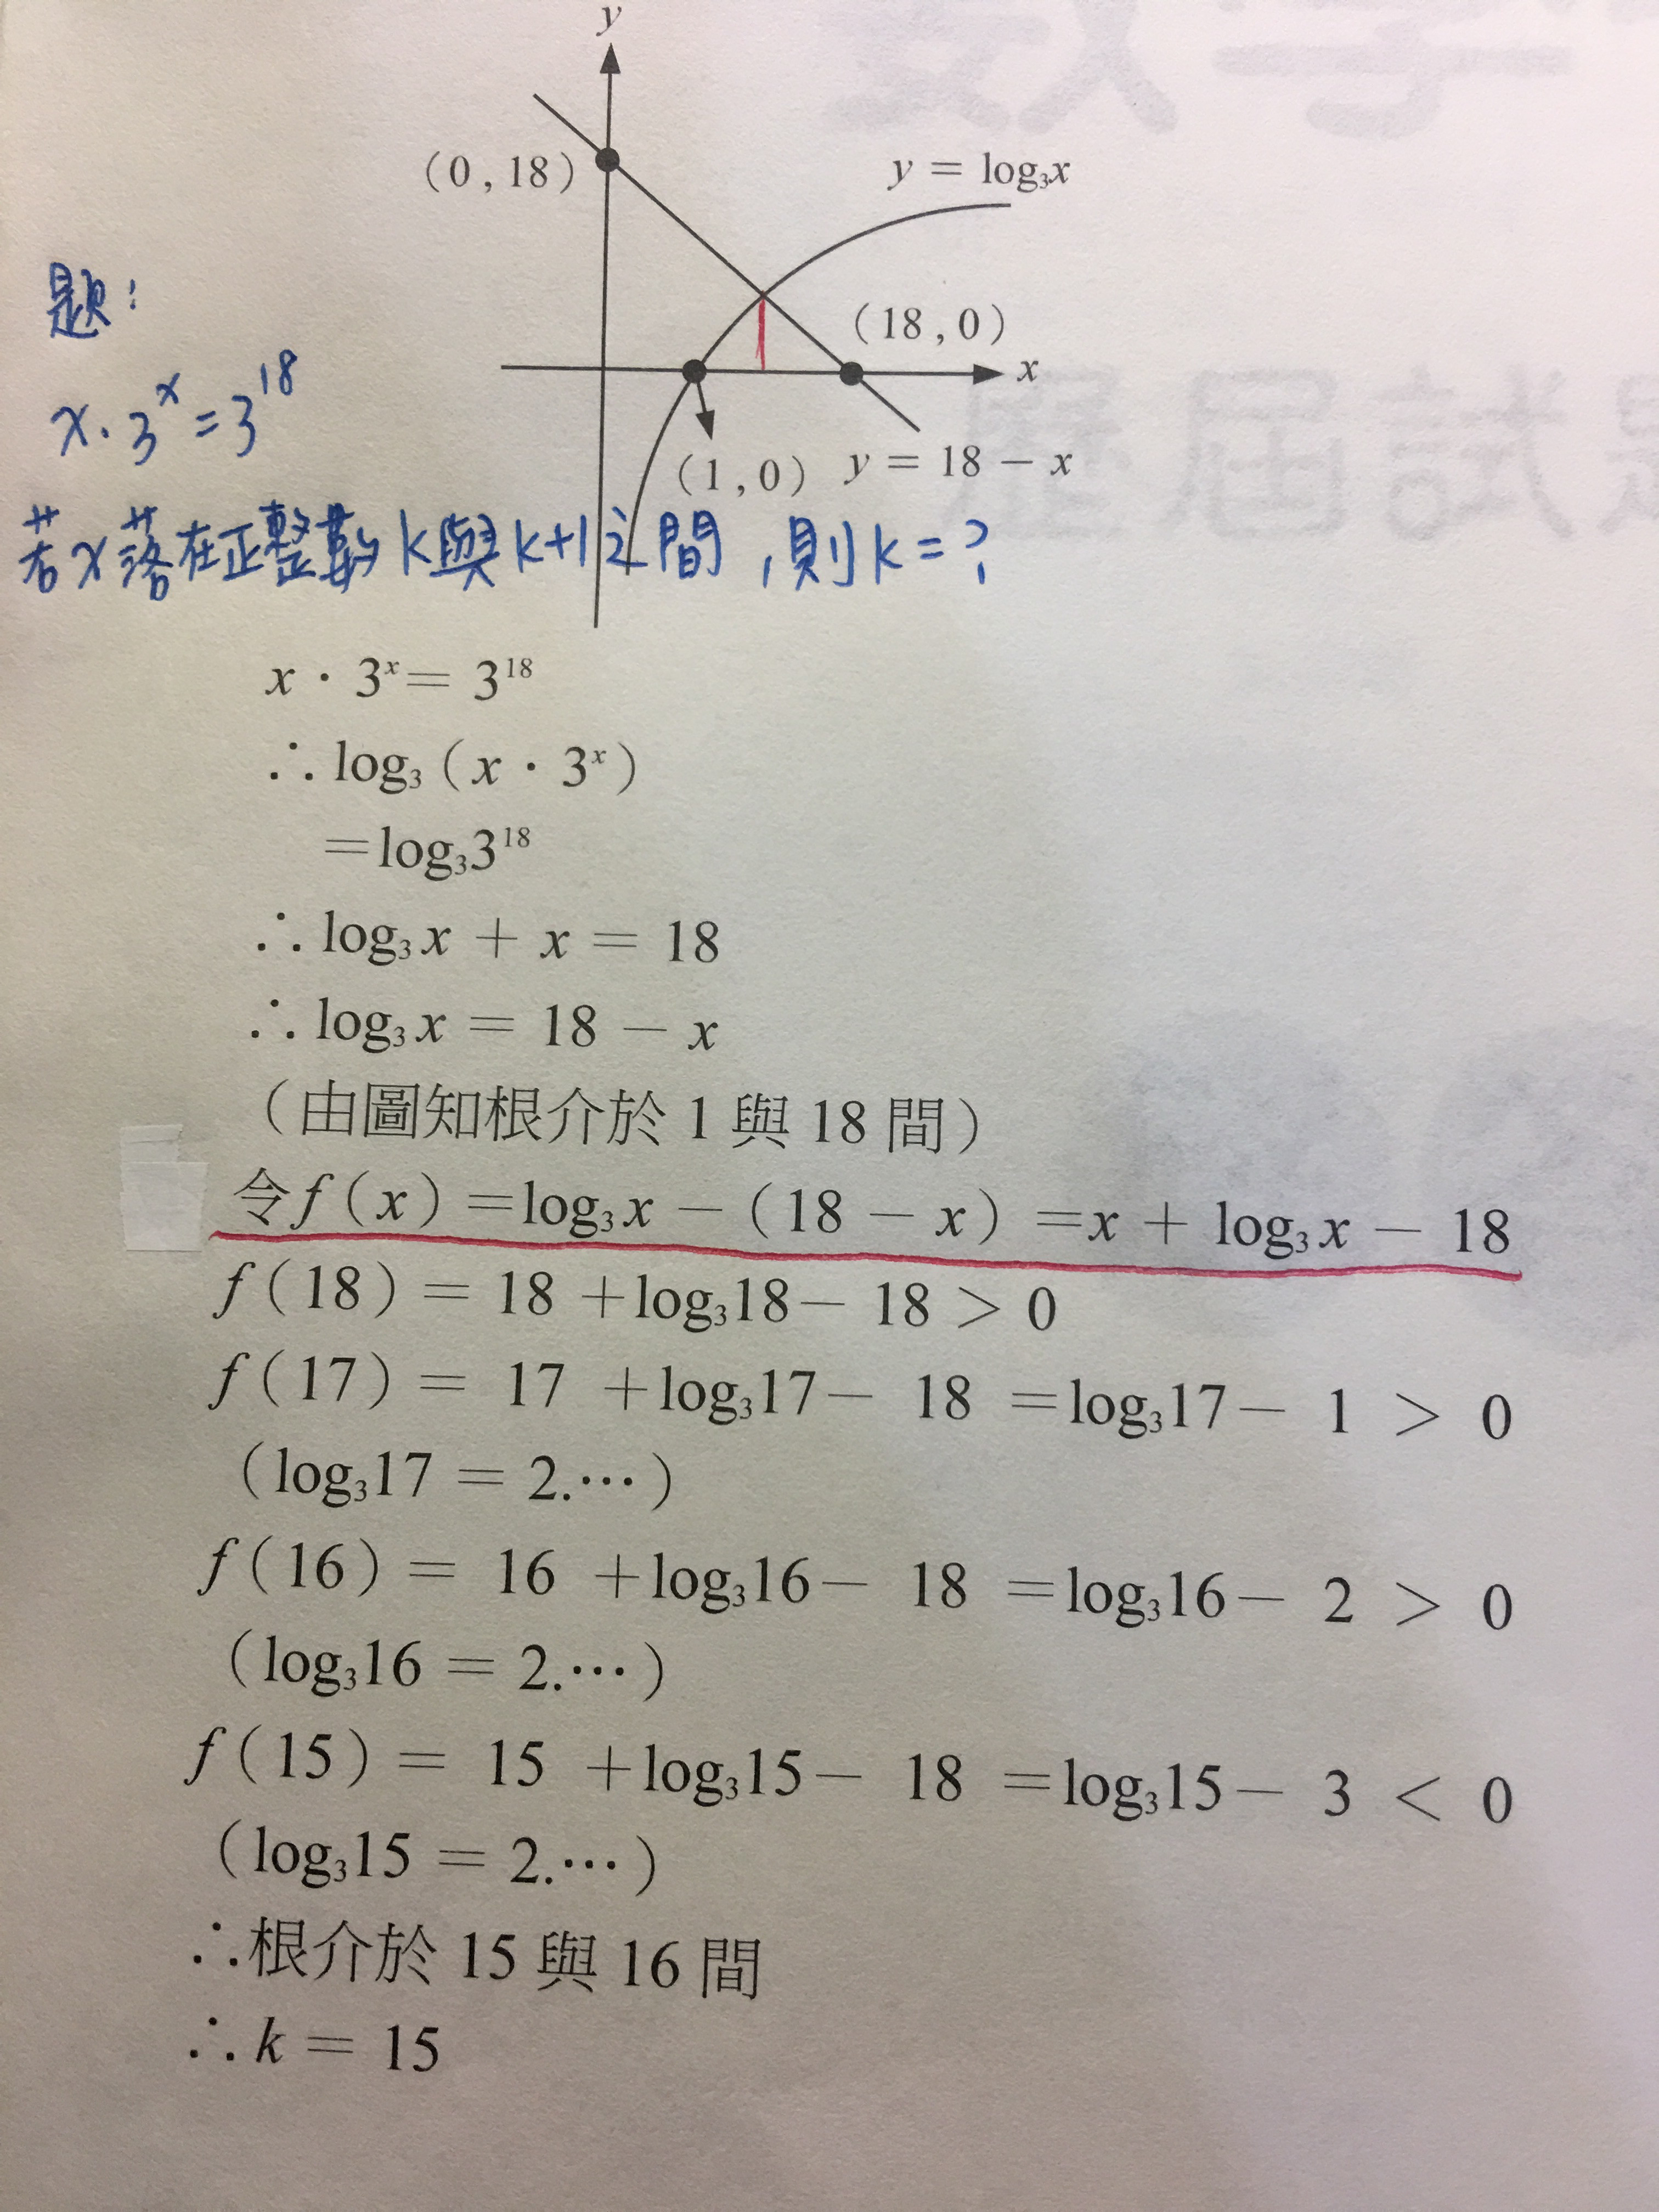 y
(0,18)
y = log₃x
題:
(18,0)
x
x·3ˣ=3¹⁸
(1,0) y = 18 − x
若x落在正整數k與k+1之間,則k=?
x · 3ˣ= 3¹⁸
∴ log₃(x · 3ˣ)
=log₃3¹⁸
∴ log₃x + x = 18
∴ log₃x = 18 − x
(由圖知根介於 1 與 18 間)
令f(x)=log₃x −(18 − x)=x + log₃x − 18
f(18)= 18 +log₃18− 18 > 0
f(17)= 17 +log₃17− 18 =log₃17− 1 > 0
(log₃17 = 2.⋯)
f(16)= 16 +log₃16− 18 =log₃16− 2 > 0
(log₃16 = 2.⋯)
f(15)= 15 +log₃15− 18 =log₃15− 3 < 0
(log₃15 = 2.⋯)
∴根介於 15 與 16 間
∴ k = 15